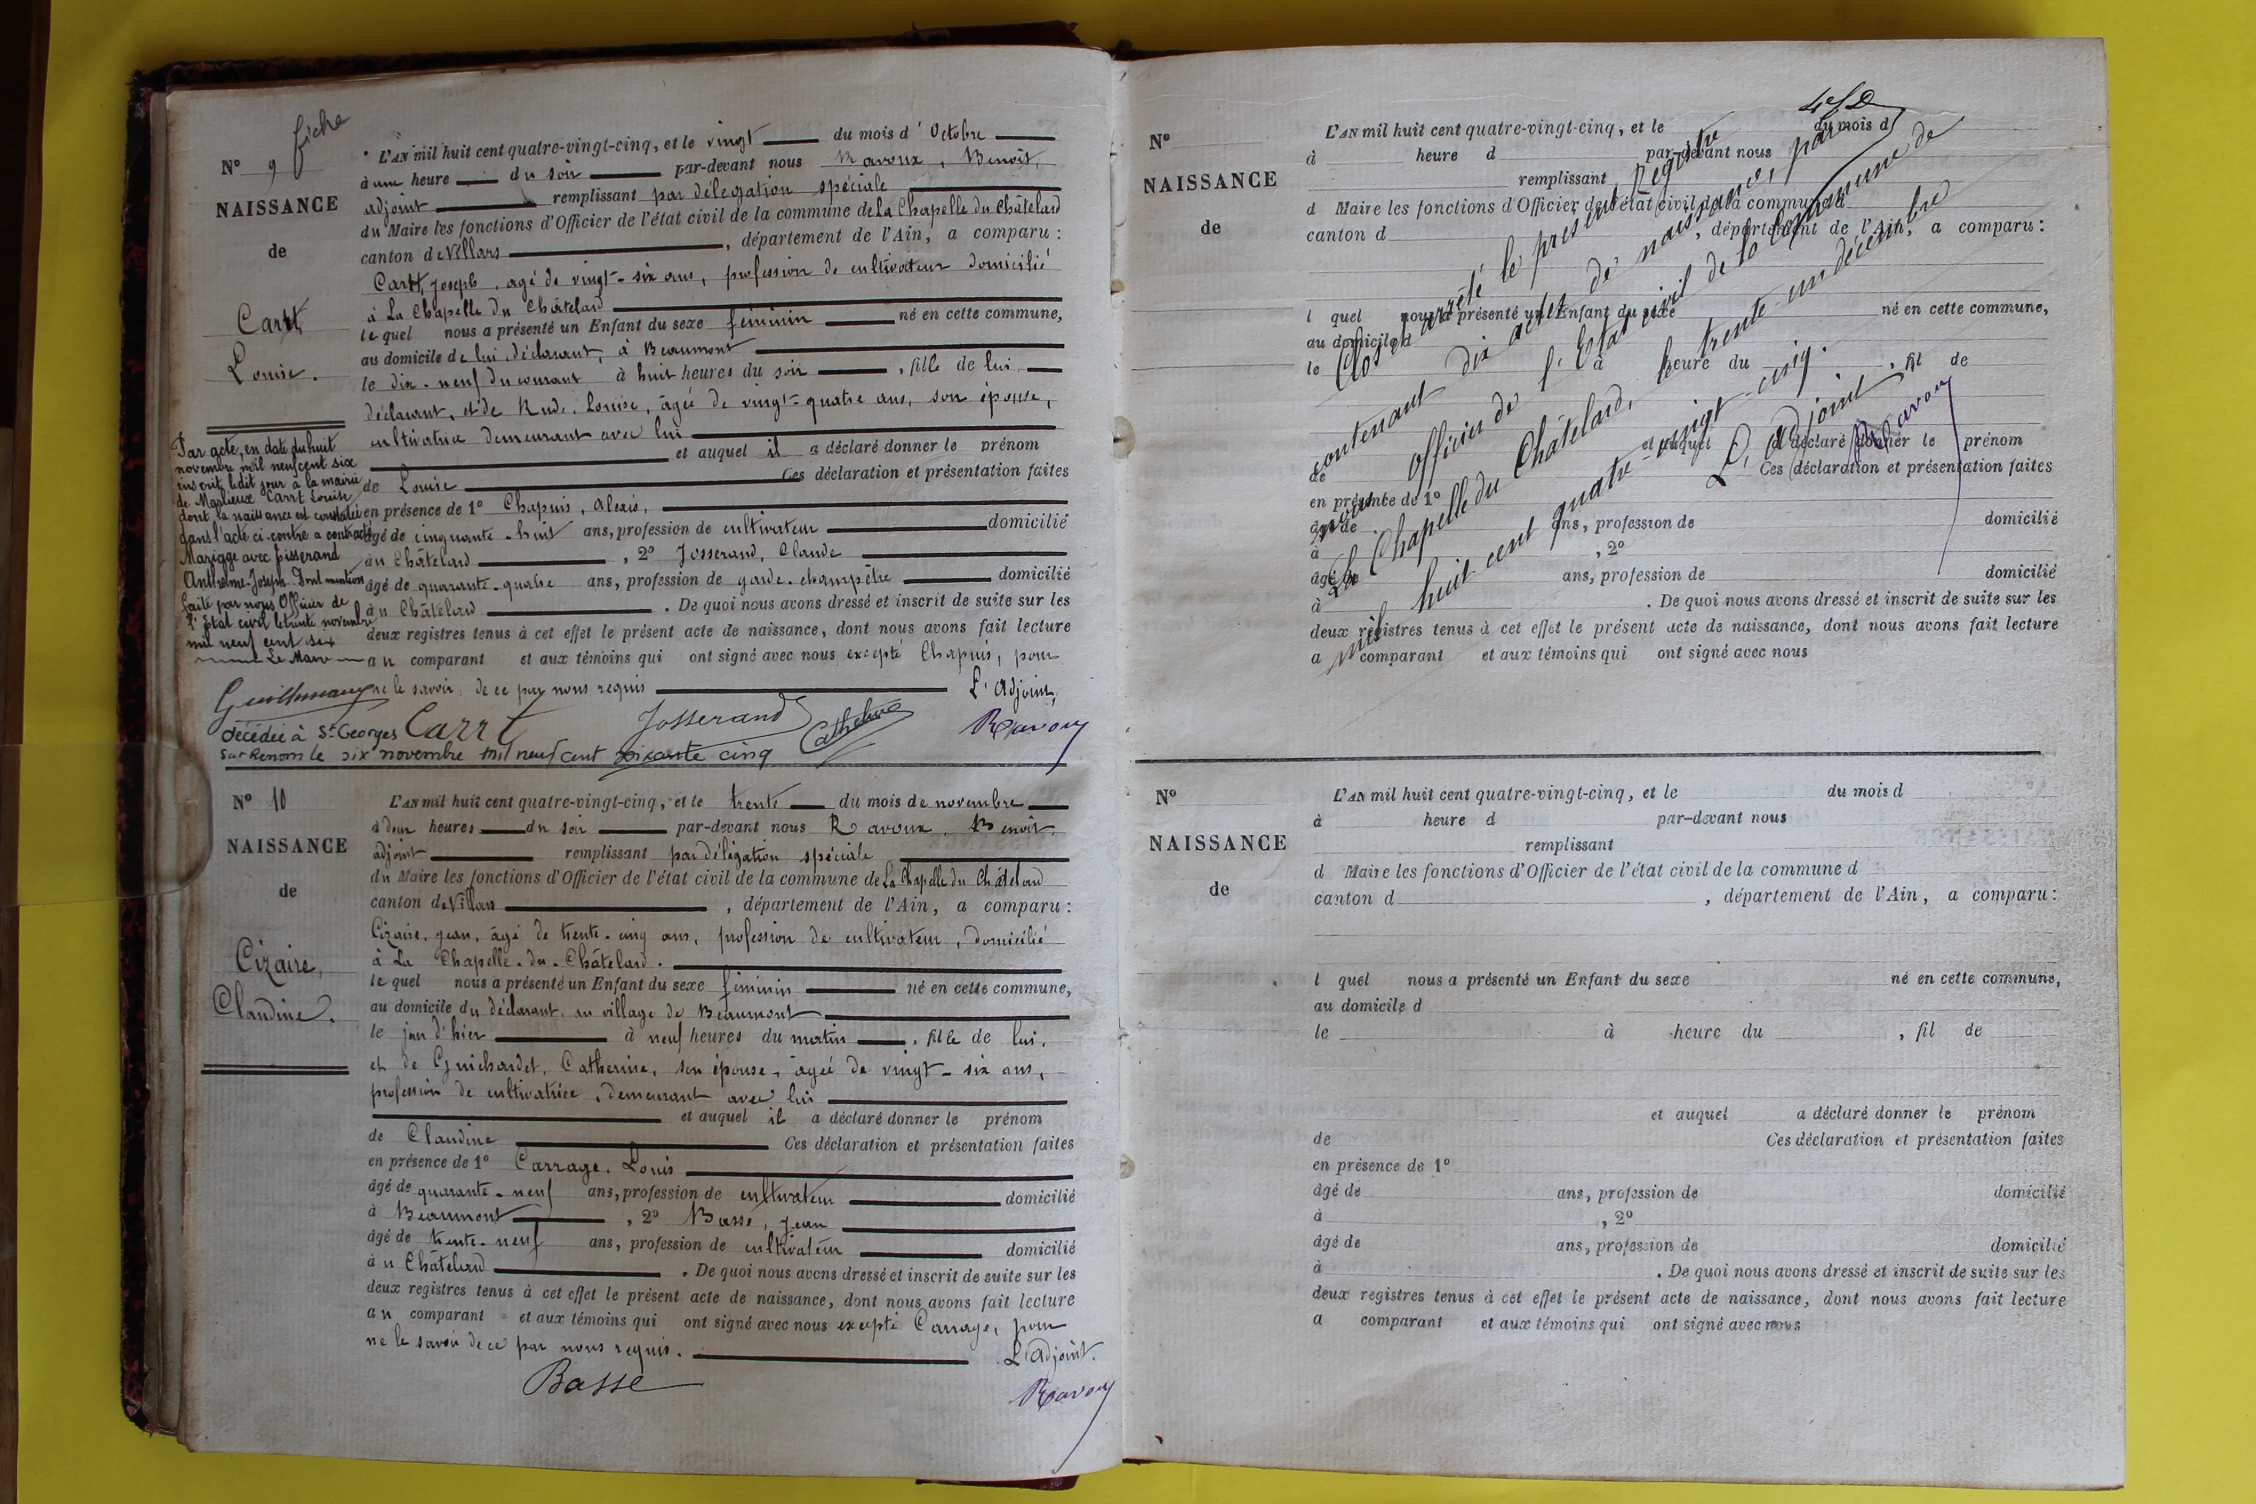 fiche
N° 9
NAISSANCE
de
Carrt,
Louise.
L'AN mil huit cent quatre-vingt-cinq, et le vingt du mois d'Octobre
à une heure du soir par-devant nous Ravoux, Benoît,
adjoint remplissant par délégation spéciale
du Maire les fonctions d'Officier de l'état civil de la commune de La Chapelle du Châtelard
canton de Villars, département de l'Ain, a comparu :
Carrt, Joseph, agé de vingt-six ans, profession de cultivateur domicilié
à La Chapelle du Châtelard
le quel nous a présenté un Enfant du sexe féminin né en cette commune,
au domicile de lui, déclarant, à Beaumont
le dix-neuf du courant à huit heures du soir, fille de lui
déclarant, et de Rude, Louise, âgée de vingt-quatre ans, son épouse,
cultivatrice demeurant avec lui
et auquel il a déclaré donner le prénom
de Louise Ces déclaration et présentation faites
en présence de 1° Chapuis, Alexis,
âgé de cinquante-huit ans, profession de cultivateur domicilié
au Châtelard, 2° Josserand, Claude
âgé de quarante-quatre ans, profession de garde-champêtre domicilié
au Châtelard. De quoi nous avons dressé et inscrit de suite sur les
deux registres tenus à cet effet le présent acte de naissance, dont nous avons fait lecture
au comparant et aux témoins qui ont signé avec nous excepté Chapuis, pour
ne le savoir, de ce par nous requis L'Adjoint,
Carrt Josserand Ravoux
Par acte, en date du huit
novembre mil neuf cent six
inscrit ledit jour à la mairie
de Marlieux Carrt Louise
dont la naissance est constatée
dans l'acte ci-contre a contracté
Mariage avec Pisserand
Anthelme-Joseph Dont mention
faite par nous Officier de
l'Etat civil le trente novembre
mil neuf cent six
Le Maire
décédée à St Georges
sur Renom le six novembre mil neuf cent soixante cinq
N° 10
NAISSANCE
de
Cizaire,
Claudine.
L'AN mil huit cent quatre-vingt-cinq, et le trente du mois de novembre
à deux heures du soir par-devant nous Ravoux, Benoit,
adjoint remplissant par délégation spéciale
du Maire les fonctions d'Officier de l'état civil de la commune de La Chapelle du Châtelard
canton de Villars, département de l'Ain, a comparu :
Cizaire, Jean, âgé de trente-cinq ans, profession de cultivateur, domicilié
à La Chapelle-du-Châtelard.
le quel nous a présenté un Enfant du sexe féminin né en cette commune,
au domicile du déclarant, au village de Beaumont
le jour d'hier à neuf heures du matin, fille de lui,
et de Guichardet, Catherine, son épouse, âgée de vingt-six ans,
profession de cultivatrice, demeurant avec lui
et auquel il a déclaré donner le prénom
de Claudine Ces déclaration et présentation faites
en présence de 1° Carrage, Louis
âgé de quarante-neuf ans, profession de cultivateur domicilié
à Beaumont, 2° Basse, Jean
âgé de trente-neuf ans, profession de cultivateur domicilié
au Châtelard. De quoi nous avons dressé et inscrit de suite sur les
deux registres tenus à cet effet le présent acte de naissance, dont nous avons fait lecture
au comparant et aux témoins qui ont signé avec nous excepté Carrage, pour
ne le savoir de ce par nous requis. L'Adjoint.
Basse Ravoux
N°
NAISSANCE
de
L'AN mil huit cent quatre-vingt-cinq, et le du mois d
à heure d par-devant nous
remplissant
d Maire les fonctions d'Officier de l'état civil de la commune d
canton d, département de l'Ain, a comparu :
l quel nous a présenté un Enfant du sexe né en cette commune,
au domicile d
le à heure du, fil de
et auquel a déclaré donner le prénom
de Ces déclaration et présentation faites
en présence de 1°
âgé de ans, profession de domicilié
à, 2°
âgé de ans, profession de domicilié
à. De quoi nous avons dressé et inscrit de suite sur les
deux registres tenus à cet effet le présent acte de naissance, dont nous avons fait lecture
a comparant et aux témoins qui ont signé avec nous
Clos et arrêté le présent Registre
contenant dix actes de naissance, par
nous officier de l'Etat civil de la commune de
La Chapelle du Châtelard, trente-un décembre
mil huit cent quatre-vingt-cinq.
L'Adjoint
Ravoux
N°
NAISSANCE
de
L'AN mil huit cent quatre-vingt-cinq, et le du mois d
à heure d par-devant nous
remplissant
d Maire les fonctions d'Officier de l'état civil de la commune d
canton d, département de l'Ain, a comparu :
l quel nous a présenté un Enfant du sexe né en cette commune,
au domicile d
le à heure du, fil de
et auquel a déclaré donner le prénom
de Ces déclaration et présentation faites
en présence de 1°
âgé de ans, profession de domicilié
à, 2°
âgé de ans, profession de domicilié
à. De quoi nous avons dressé et inscrit de suite sur les
deux registres tenus à cet effet le présent acte de naissance, dont nous avons fait lecture
a comparant et aux témoins qui ont signé avec nous